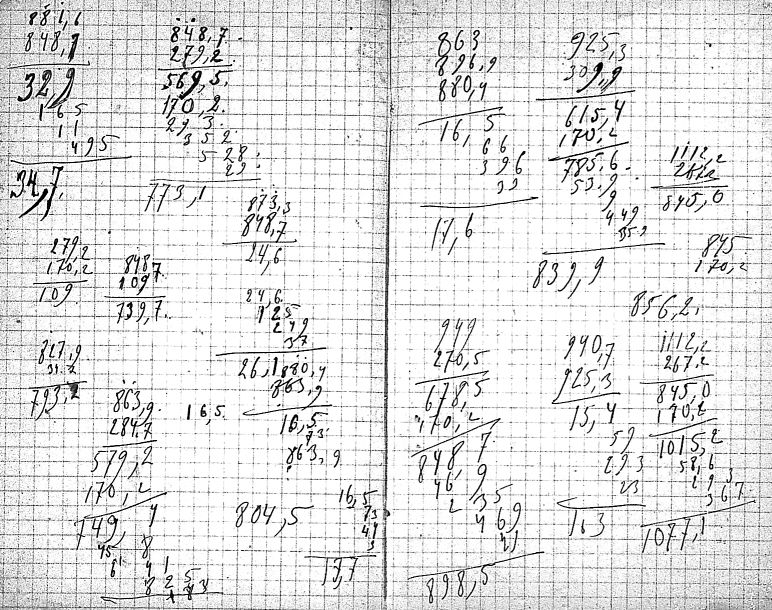 881,6
848,7
32,9
165
11
495
34,7.
848,7.
279,2
569,5.
170,2.
29 3.
3 5 2.
5 28.
29.
773,1
873,3
848,7
24,6
279,2
170,2
109
848,7
109
739,7.
24,6.
1 2 5
2 49
37
26,1
827,9
793,2
880,4
863,9
16,5
73
863,9
863,9.
284,7
579,2
170,2
749,
16,5.
804,5
16,5
73
41
3
17,7
863
896,9
880,4
16,5
6 6
3 96
33
17,6
925,3
309,9
615,4
170,2
785,6.
53,9.
9
4 49
352
839,9
1112,2
845,0
845
170,2
856,2.
949
270,5
678,5
170,2
848,7
46 9
2 35
4 69
21
898,5
940,7
925,3
15,4
59
293
23
163
1112,2
267,2
845,0
170,2
1015,2
58,6
2 9 3
3 67
1077,1